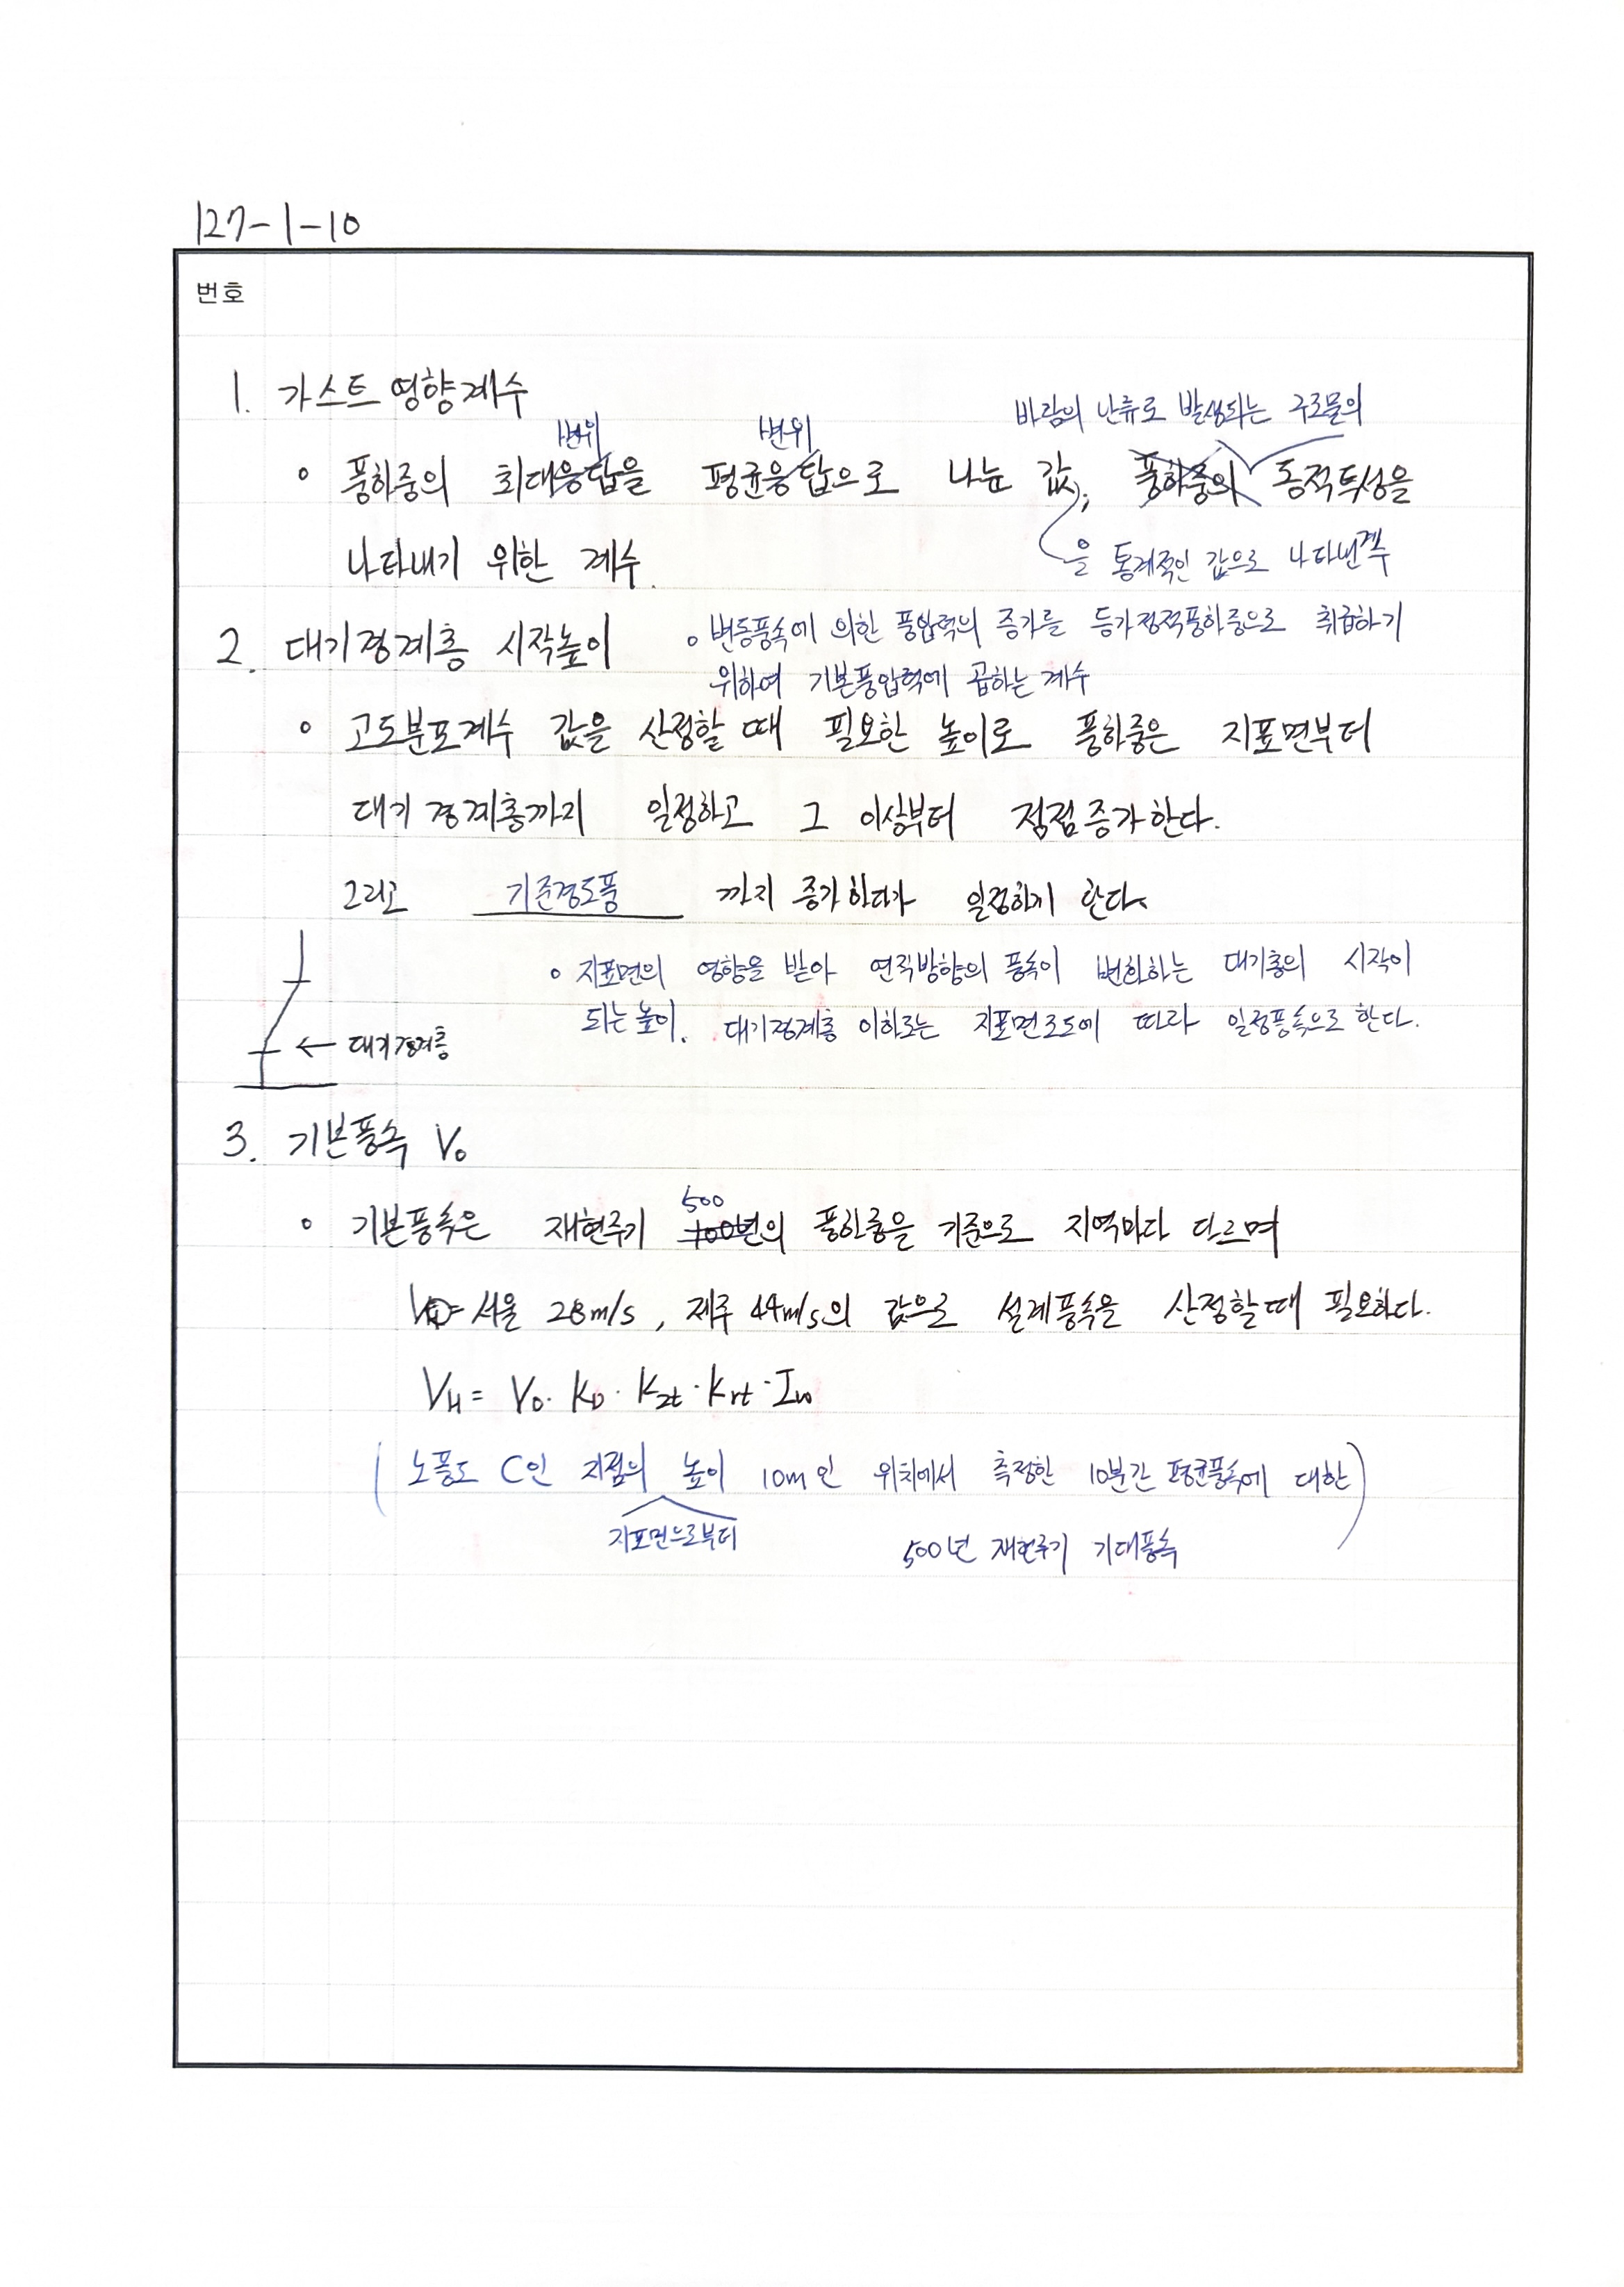 127-1-10
번호
1. 가스트 영향계수
바람의 난류로 발생되는 구조물의
변위 변위
◦ 풍하중의 최대응답을 평균응답으로 나눈 값, 풍하중의 동적특성을
나타내기 위한 계수.
을 통계적인 값으로 나타낸 계수
2. 대기경계층 시작높이
◦ 변동풍속에 의한 풍압력의 증가를 등가정적풍하중으로 취급하기
위하여 기본풍압력에 곱하는 계수
◦ 고도분포계수 값을 산정할 때 필요한 높이로 풍하중은 지표면부터
대기경계층까지 일정하고 그 이상부터 점점 증가한다.
그리고 기준경도풍 까지 증가하다가 일정하게 한다.
◦ 지표면의 영향을 받아 연직방향의 풍속이 변화하는 대기층의 시작이
되는 높이. 대기경계층 이하로는 지표면조도에 따라 일정풍속으로 한다.
← 대기경계층
3. 기본풍속 V₀
500
◦ 기본풍속은 재현주기 100년의 풍하중을 기준으로 지역마다 다르며
서울 28m/s, 제주 44m/s의 값으로 설계풍속을 산정할 때 필요하다.
V_H = V₀ · K_D · K_zt · K_rt · I_w
(노풍도 C인 지점의 높이 10m인 위치에서 측정한 10분간 평균풍속에 대한
지표면으로부터
500년 재현주기 기대풍속)